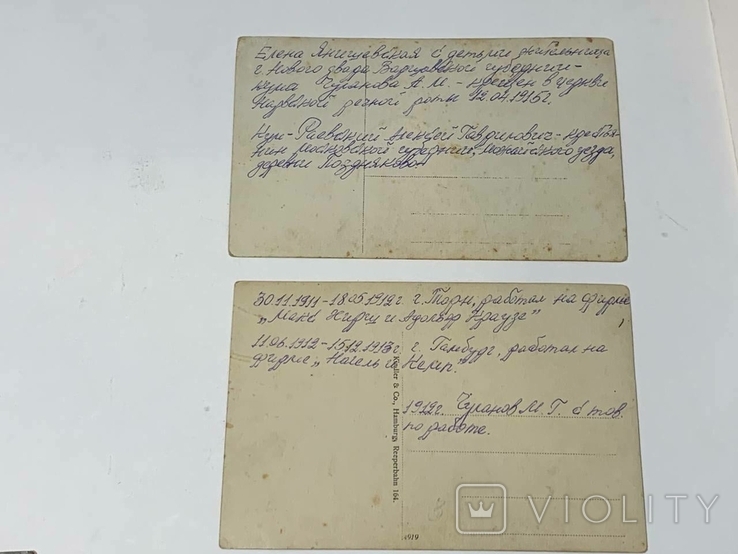 Елена Янишевская с детьми жительница
г. Нового двада Варшавской губернии-
кума Чуранова А.М. - крещен в церкви
Нарвской речной роты 12.04.1915г.
Кум-Раевский Алексей Гаврилович-крестья-
нин Московской губернии, Можайского уезда,
деревни Поздняково.
30.11.1911-18.05.1912 г. г. Торн, работал на фирме
„Макс Хирш и Адольф Краузе"
11.06.1912-15.12.1913г. г. Гамбург, работал на
фирме „Нагель и Кемп."
1912г. Чуранов М. Г. с тов.
по работе.
Knäller & Co., Hamburg, Reeperbahn 164.
4919
VIOLITY